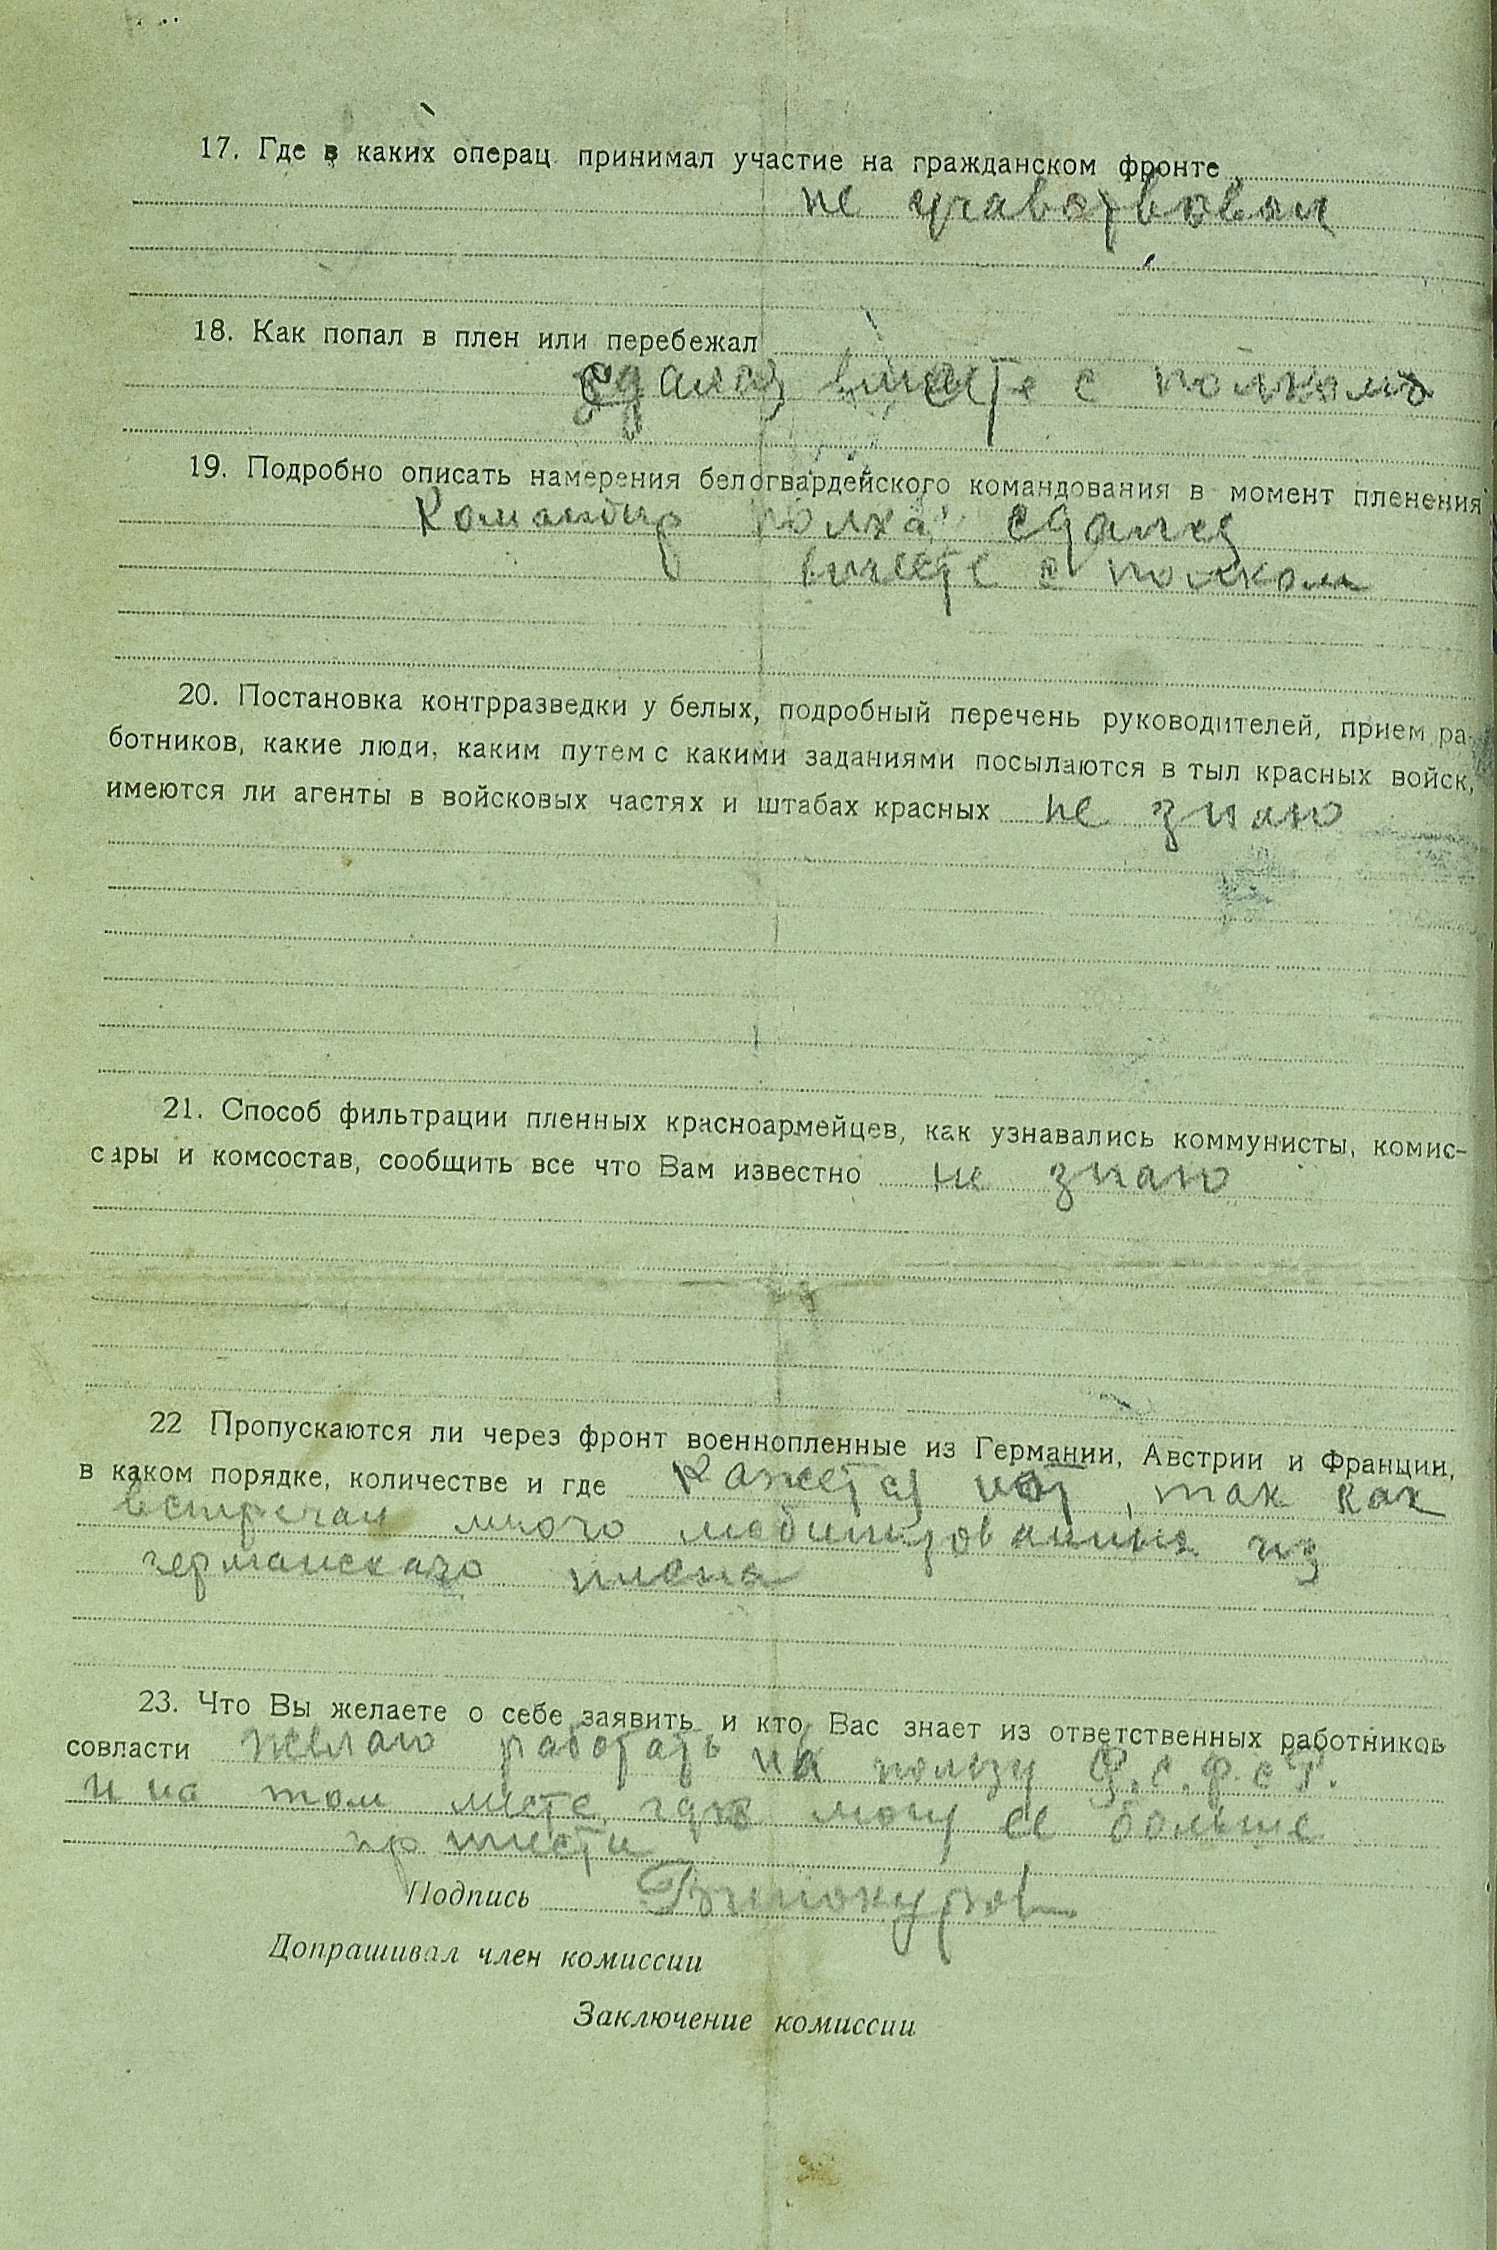 17. Где в каких операц. принимал участие на гражданском фронте
не учавствовал
18. Как попал в плен или перебежал
сдался вместе с полкомъ
19. Подробно описать намерения белогвардейского командования в момент пленения
Командир полка сдался
вместе с полком
20. Постановка контрразведки у белых, подробный перечень руководителей, прием ра-
ботников, какие люди, каким путем с какими заданиями посылаются в тыл красных войск,
имеются ли агенты в войсковых частях и штабах красных не знаю
21. Способ фильтрации пленных красноармейцев, как узнавались коммунисты, комис-
сары и комсостав, сообщить все что Вам известно не знаю
22 Пропускаются ли через фронт военнопленные из Германии, Австрии и Франции,
в каком порядке, количестве и где кажется нет, так как
встречал много мобилизованных из
германского плена
23. Что Вы желаете о себе заявить и кто Вас знает из ответственных работников
совласти желаю работать на пользу Р.С.Ф.С.Р.
и на том месте где могу ее больше
принести
Подпись Винокуров
Допрашивал член комиссии
Заключение комиссии